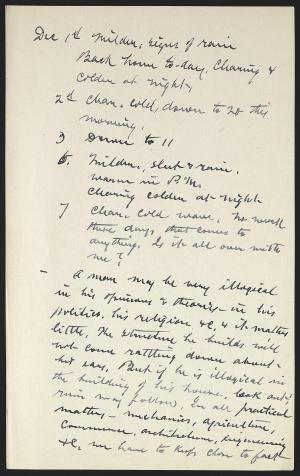 Dec 1st Milder, signs of rain
Back home to-day. Clearing &
colder at night,
2d Clear, cold, down to 20 this
morning.
3 Down to 11
6. Milder, sleet & rain,
warm in P.M.
Clearing colder at night
7 Clear. Cold wave. No work
these days, that comes to
anything. Is it all over with
me?
— A man may be very illogical
in his opinions & theories — in his
politics, his religion &c, & it matters
little. The structure he builds will
not come rattling down about
his ears. But if he is illogical in
the building of his house, look out!
ruin may follow. In all practical
matters — mechanics, agriculture,
commerce, architecture, engineering
&c, we have to keep close to fact